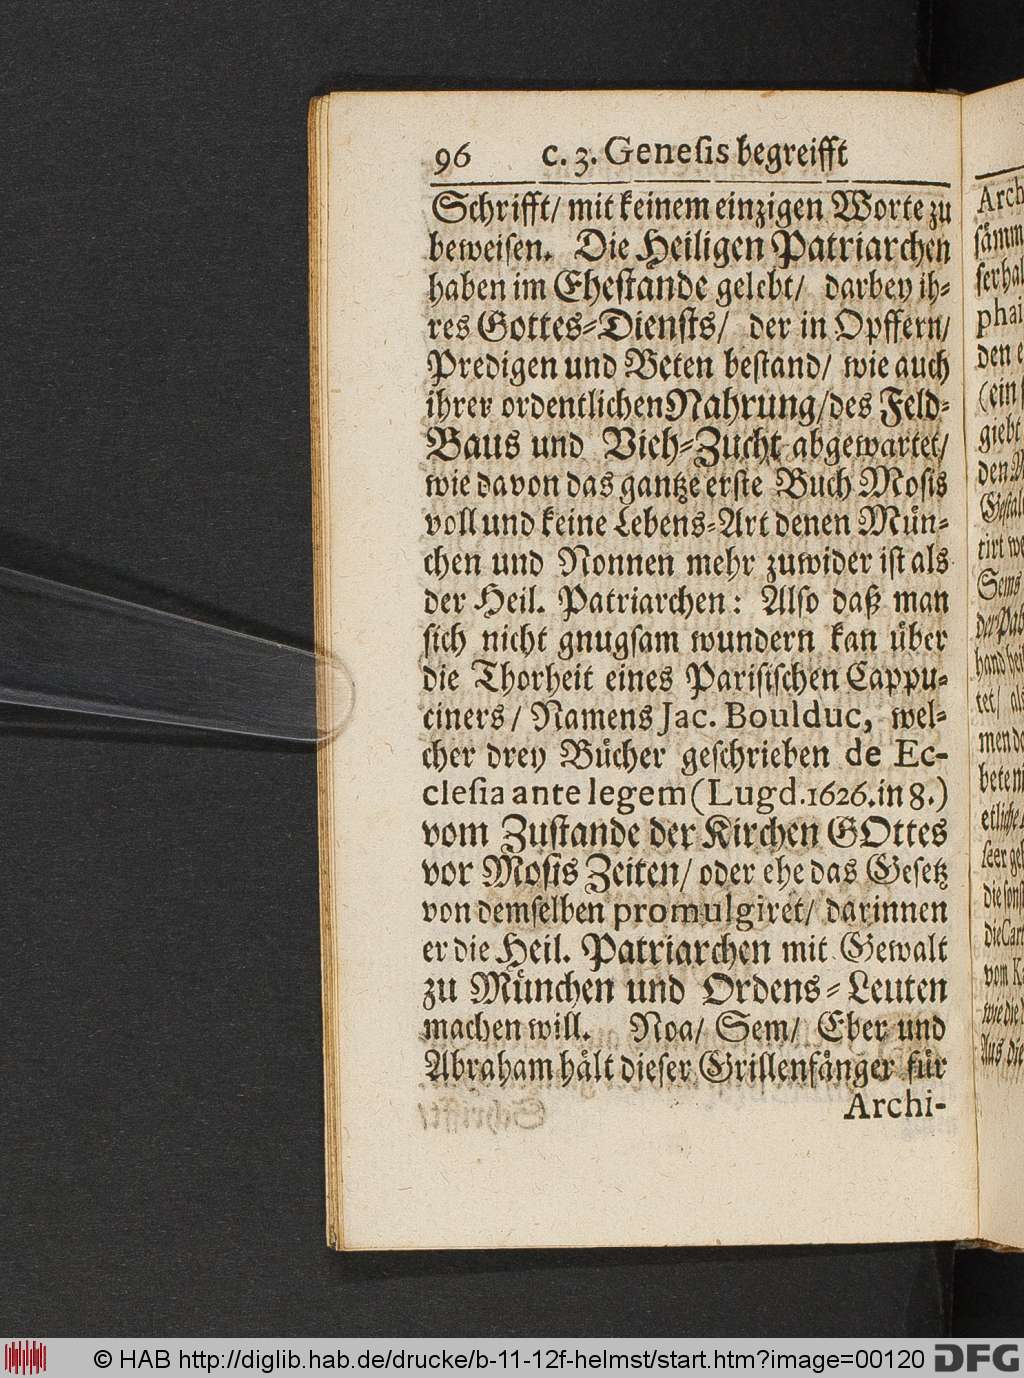 96 c. 3. Genesis begreifft
Schrifft/ mit keinem einzigen Worte zu
beweisen. Die Heiligen Patriarchen
haben im Ehestande gelebt/ darbey ih-
res Gottes-Diensts/ der in Opffern/
Predigen und Beten bestand/ wie auch
ihrer ordentlichen Nahrung/des Feld-
Baus und Vieh-Zucht abgewartet/
wie davon das gantze erste Buch Mosis
voll und keine Lebens-Art denen Mün-
chen und Nonnen mehr zuwider ist als
der Heil. Patriarchen: Also daß man
sich nicht gnugsam wundern kan über
die Thorheit eines Parisischen Cappu-
ciners/ Namens Jac. Boulduc, wel-
cher drey Bücher geschrieben de Ec-
clesia ante legem (Lugd. 1626. in 8.)
vom Zustande der Kirchen GOttes
vor Mosis Zeiten/ oder ehe das Gesetz
von demselben promulgiret/ darinnen
er die Heil. Patriarchen mit Gewalt
zu München und Ordens-Leuten
machen will. Noa/ Sem/ Eber und
Abraham hält dieser Grillenfänger für
Archi-
© HAB http://diglib.hab.de/drucke/b-11-12f-helmst/start.htm?image=00120
DFG